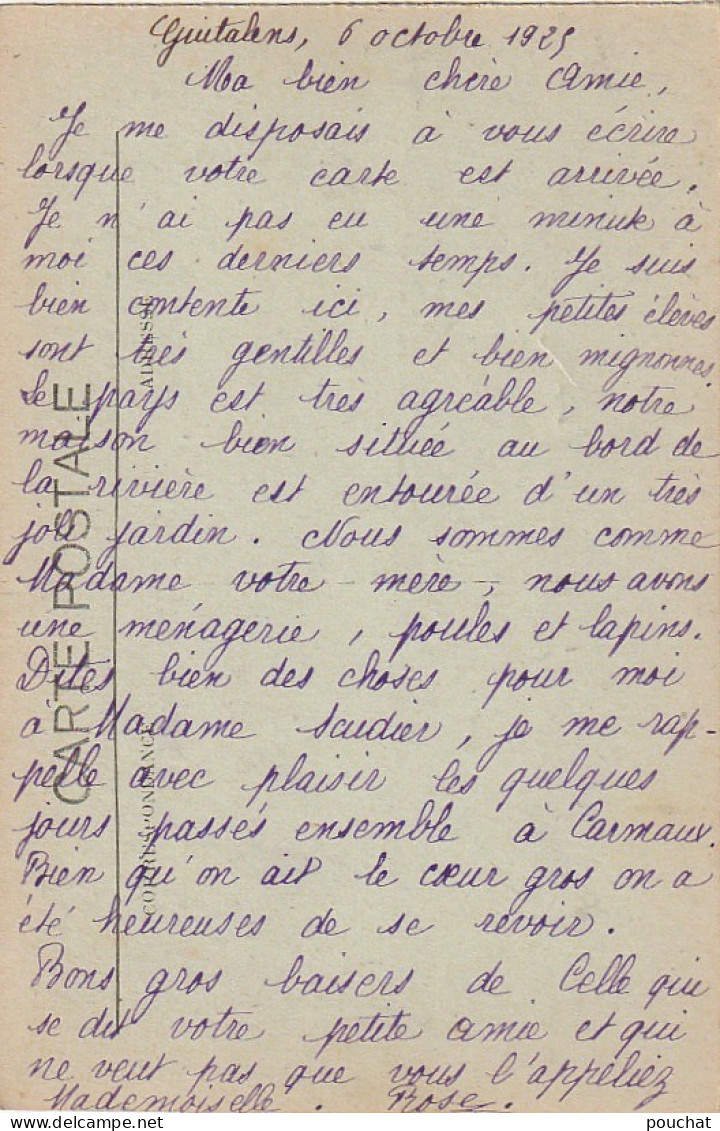 Guitalens, 6 octobre 1925
Ma bien chère Amie,
Je me disposais à vous écrire
lorsque votre carte est arrivée.
Je n'ai pas eu une minute à
moi ces derniers temps. Je suis
bien contente ici, mes petites élèves
sont très gentilles et bien mignonnes.
Le pays est très agréable, notre
maison bien située au bord de
la rivière est entourée d'un très
joli jardin. Nous sommes comme
Madame votre mère, nous avons
une ménagerie, poules et lapins.
Dites bien des choses pour moi
à Madame Saudier, je me rap-
pelle avec plaisir les quelques
jours passés ensemble à Carmaux.
Bien qu'on ait le cœur gros on a
été heureuses de se revoir.
Bons gros baisers de Celle qui
se dit votre petite amie et qui
ne veut pas que vous l'appeliez
Mademoiselle. Rose.
CARTE POSTALE
CORRESPONDANCE
ADRESSE
pouchat